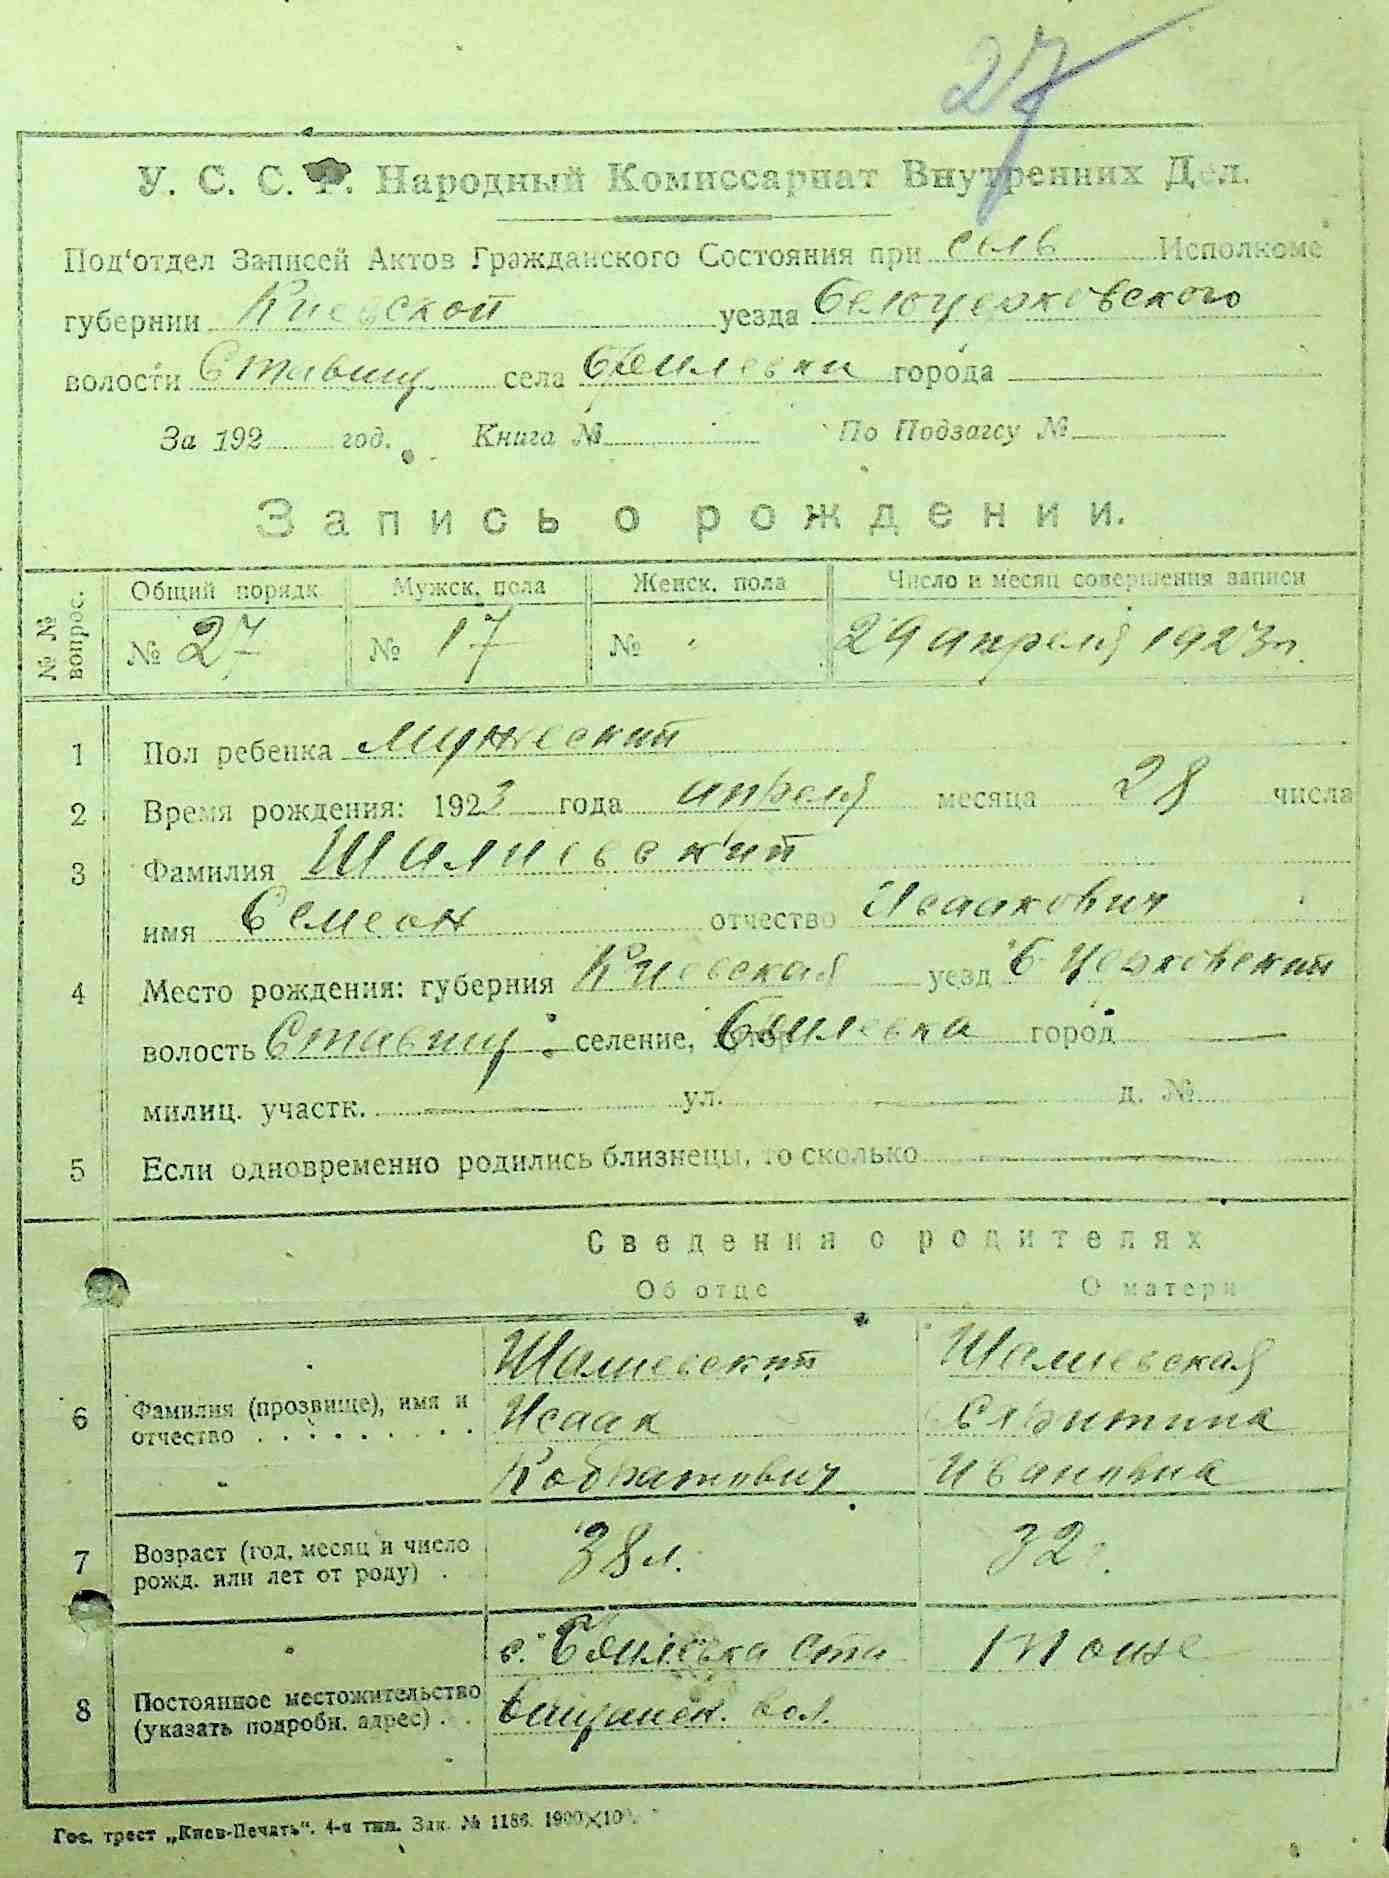 27
У. С. С. Р. Народный Комиссариат Внутренних Дел.
Под'отдел Записей Актов Гражданского Состояния при Исполкоме
губернии Киевской уезда Белоцерковского
волости Ставищ села города
За 192 год. Книга № По Подзагсу №
Запись о рождении.
№ № вопрос.
Общий порядк. Мужск. пола Женск. пола Число и месяц совершения записи
№ 27 № 17 № 29 апреля 1923 г.
1 Пол ребенка мужеский
2 Время рождения: 1923 года апреля месяца 28 числа
3 Фамилия Шалиевский
имя Семеон отчество Исаакович
4 Место рождения: губерния Киевская уезд Б Церковский
волость Ставищ. селение, город
милиц. участк. ул. д. №
5 Если одновременно родились близнецы, то сколько
Сведения о родителях
Об отце О матери
Шалиевский Шалиевская
6 Фамилия (прозвище), имя и отчество Исаак
Ивановна
7 Возраст (год, месяц и число рожд. или лет от роду) 38 л. 32
с. Ста тоже
8 Постоянное местожительство (указать подробн. адрес) вол.
Гос. трест „Киев-Печать“. 4-я тип. Зак. № 1186. 1900×10